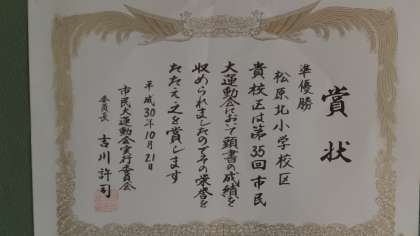 賞状
準優勝
松原北小学校区
貴校区は第35回市民
大運動会において頭書の成績を
収められましたのでその栄誉を
たたえ之を賞します
平成30年10月21日
市民大運動会実行委員会
委員長 吉川許司